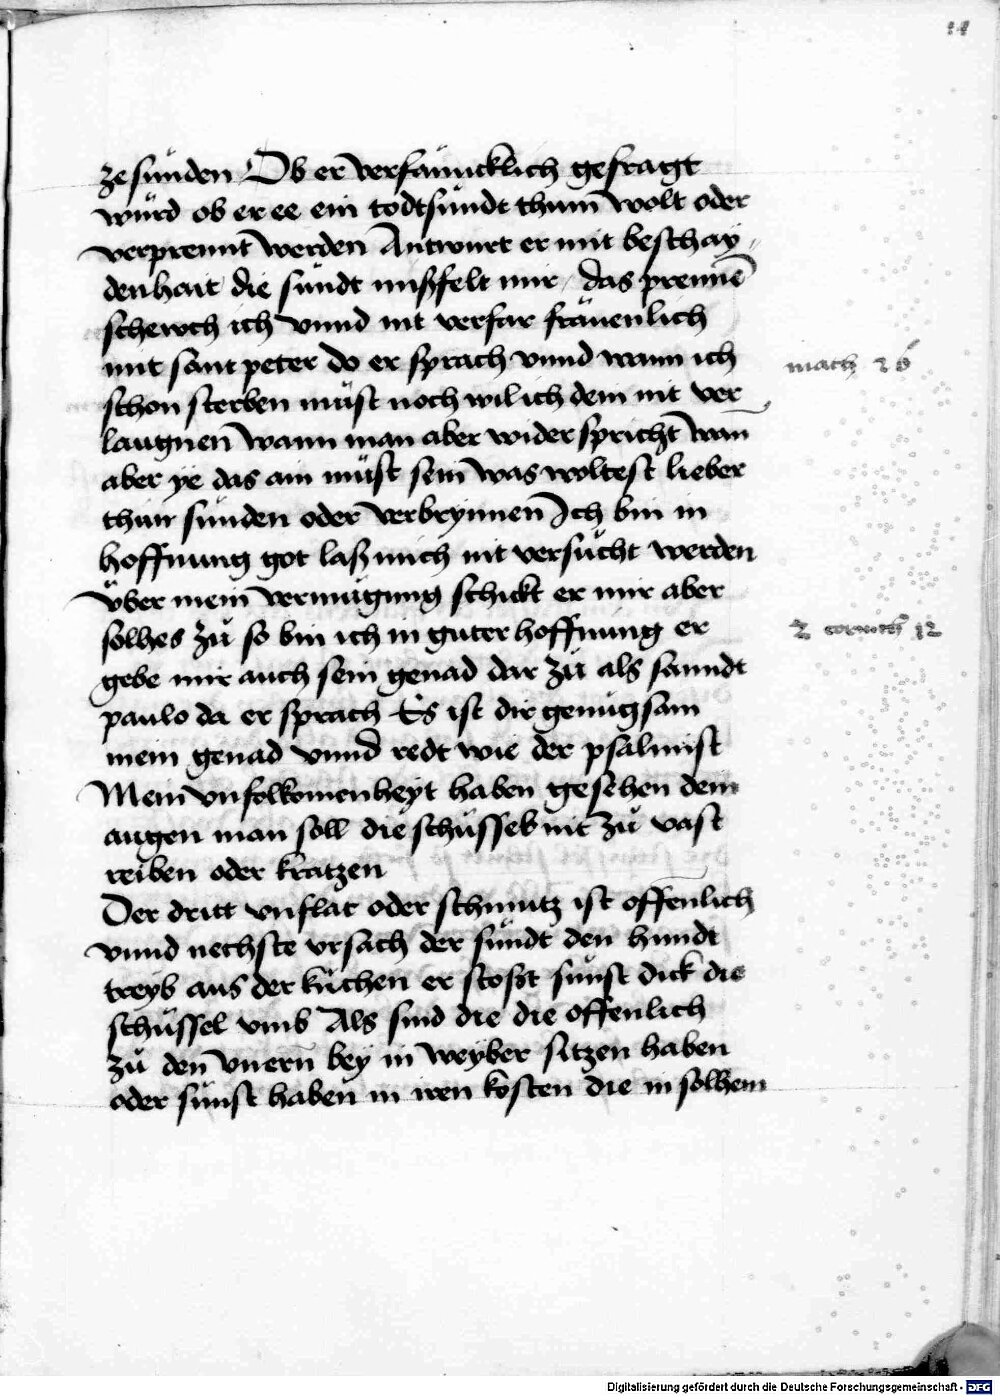 ze sünden Ob er versämicklich gefragt
würd ob er ee ein todtsündt thun wolt oder
verprennt werden Antwurt er mit beschay„
denhait die sündt mißfelt mir / das prennē
schewch ich vnnd nit verfar fräuenlich
mit sant peter do er sprach vnnd wann ich
schon sterben müst noch wil ich dein nit ver
laugnen wann man aber widerspricht wañ
aber ye das ain müst sein was woltest lieber
thun sünden oder verbrynnen Ich bin in
hoffnung got laß mich nit versücht werden
vber mein vermügung schickt er mir aber
solhes zü so bin ich in guter hoffnung er
gebe mir auch sein genad dar zü als sanndt
paulo da er sprach Es ist dir genügsam
mein genad vnnd redt wie der psalmist
Mein vnfolkomenheyt haben gesehen dein
augen man soll die schüssel nit zü vast
reiben oder kratzen
Der dritt vnflat oder schmutz ist offenlich
vnnd nechste vrsach der sündt den hundt
treyb aus der küchen er stoßt sünst dick die
schüssel vmb Als sind die die offenlich
zü den vnern bey in weyber sitzen haben
oder sünst haben in iren kosten die in solhem
math 26
2 corinth 12
Digitalisierung gefördert durch die Deutsche Forschungsgemeinschaft - DFG